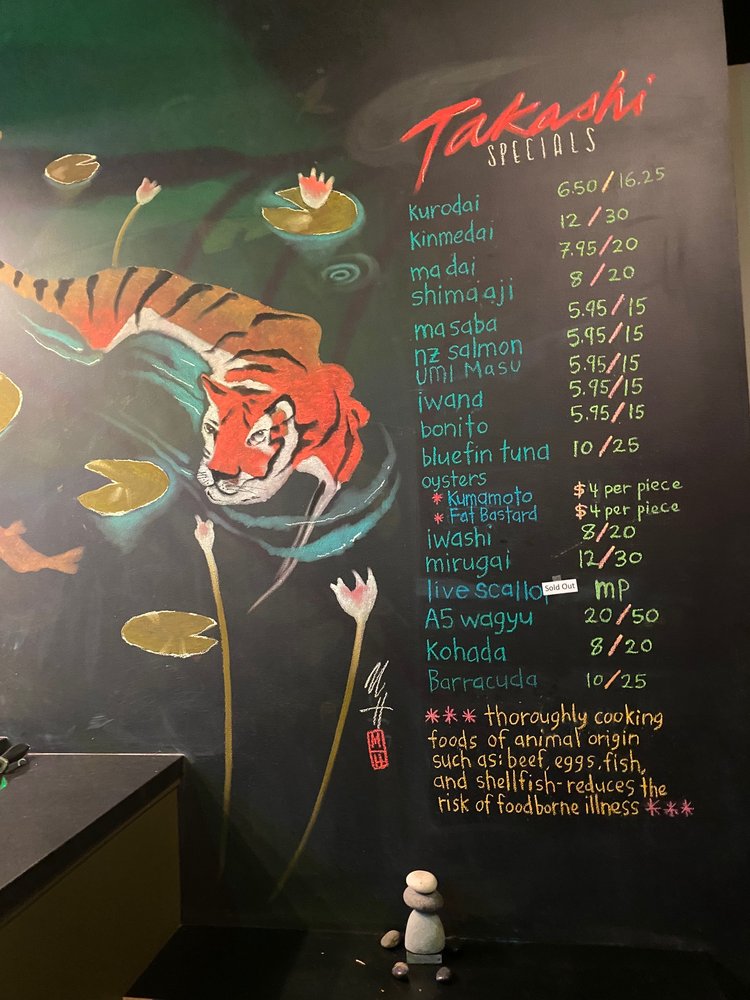 Takashi
SPECIALS
kurodai 6.50/16.25
kinmedai 12/30
madai 7.95/20
shima aji 8/20
masaba 5.95/15
nz salmon 5.95/15
umi Masu 5.95/15
iwana 5.95/15
bonito 5.95/15
bluefin tuna 10/25
oysters
* Kumamoto $4 per piece
* Fat Bastard $4 per piece
iwashi 8/20
mirugai 12/30
live scallo Sold Out mp
A5 wagyu 20/50
Kohada 8/20
Barracuda 10/25
*** thoroughly cooking
foods of animal origin
such as: beef, eggs, fish,
and shellfish-reduces the
risk of foodborne illness ***
MH